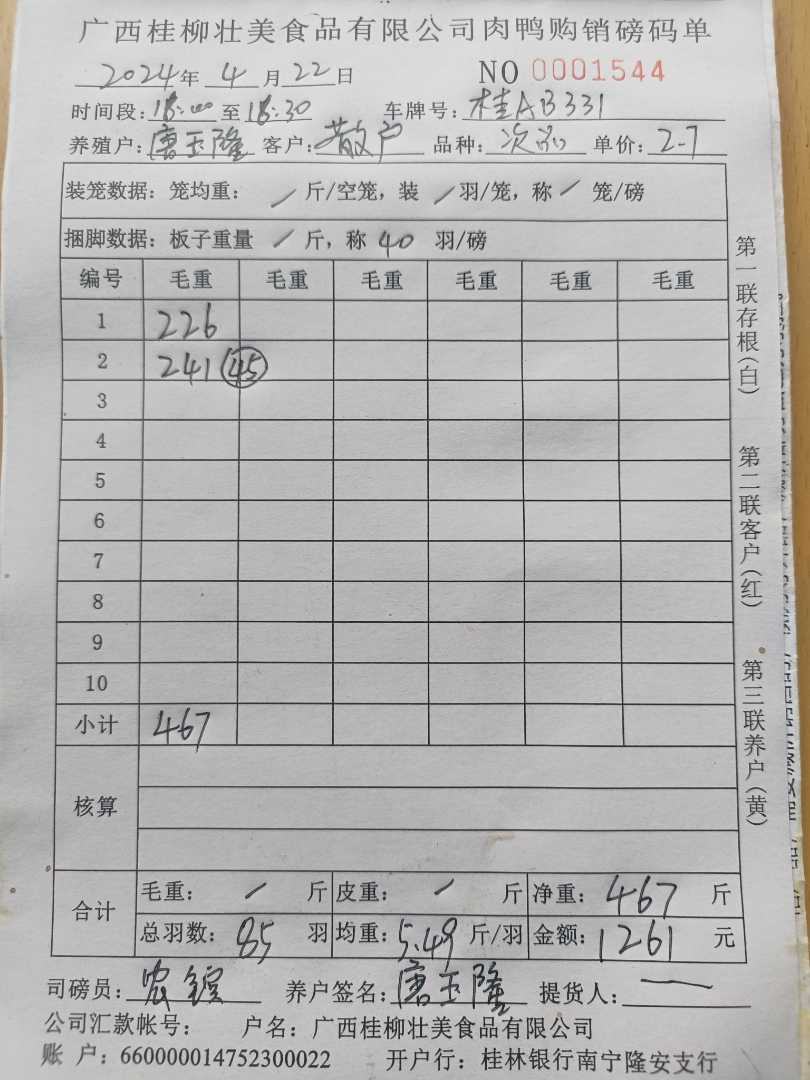 广西桂柳壮美食品有限公司肉鸭购销磅码单
2024年 4 月 22 日 NO 0001544
时间段: 18:00 至 18:30 车牌号: 桂AB331
养殖户: 唐玉隆 客户: 散户 品种: 次品 单价: 2.7
装笼数据: 笼均重: / 斤/空笼, 装 / 羽/笼, 称 / 笼/磅
捆脚数据: 板子重量 / 斤, 称 40 羽/磅
编号 毛重 毛重 毛重 毛重 毛重 毛重
1 226
2 241 (45)
3
4
5
6
7
8
9
10
小计 467
核算
合计 毛重: / 斤 皮重: / 斤 净重: 467 斤
总羽数: 85 羽 均重: 5.49 斤/羽 金额: 1261 元
司磅员: 农 养户签名: 唐玉隆 提货人: 一
公司汇款帐号: 户名: 广西桂柳壮美食品有限公司
账 户: 660000014752300022 开户行: 桂林银行南宁隆安支行
第一联存根(白)
第二联客户(红)
第三联养户(黄)